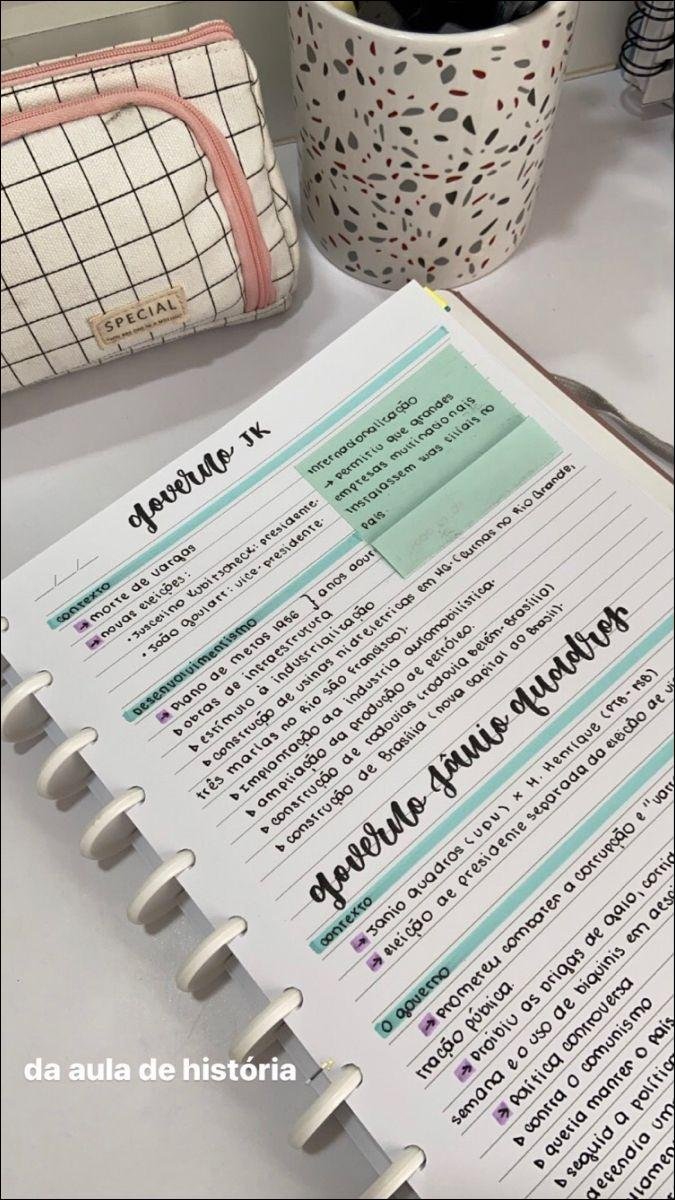 SPECIAL
governo JK
internacionalização
→ permitiu que grandes
empresas multinacionais
instalassem suas filiais no
país.
contexto
→ morte de vargas
→ novas eleições:
• Juscelino Kubitscheck: presidente.
• João Goulart: vice-presidente.
Desenvolvimentismo
→ Plano de metas 1956 } anos
obras de infraestrutura
estímulo à industrialização
construção de usinas hidrelétricas em MG. (Furnas no Rio Grande,
três marias no Rio São Francisco).
Implantação da indústria automobilística.
ampliação da produção de petróleo.
construção de rodovias (rodovia Belém-Brasília)
construção de Brasília (nova capital do Brasil).
governo Jânio quadros
contexto
→ Janio quadros (UDN) x H. Henrique (PTB-PSB)
→ eleição de presidente separada da eleição de
O governo
→ Prometeu combater a corrupção e
tração pública.
→ Proibiu as brigas de galo,
semana e o uso de biquinis em
→ política controversa
contra o comunismo
queria manter o país
seguia a política
defendia
da aula de história